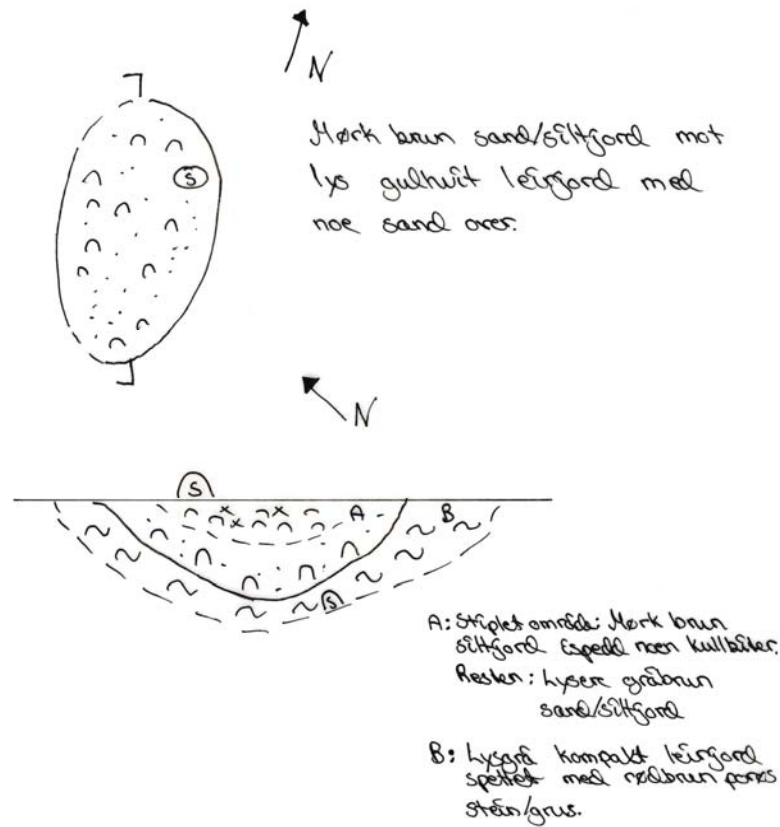 N
Mørk brun sand/siltjord mot
lys gulhvit leirjord med
noe sand over.
S
N
S
A
B
S
A: Stiplet område: Mørk brun
siltjord ispedd noen kullbiter.
Resten: Lysere gråbrun
sand/siltjord
B: Lysgrå kompakt leirjord
spettet med rødbrun porøs
stein/grus.